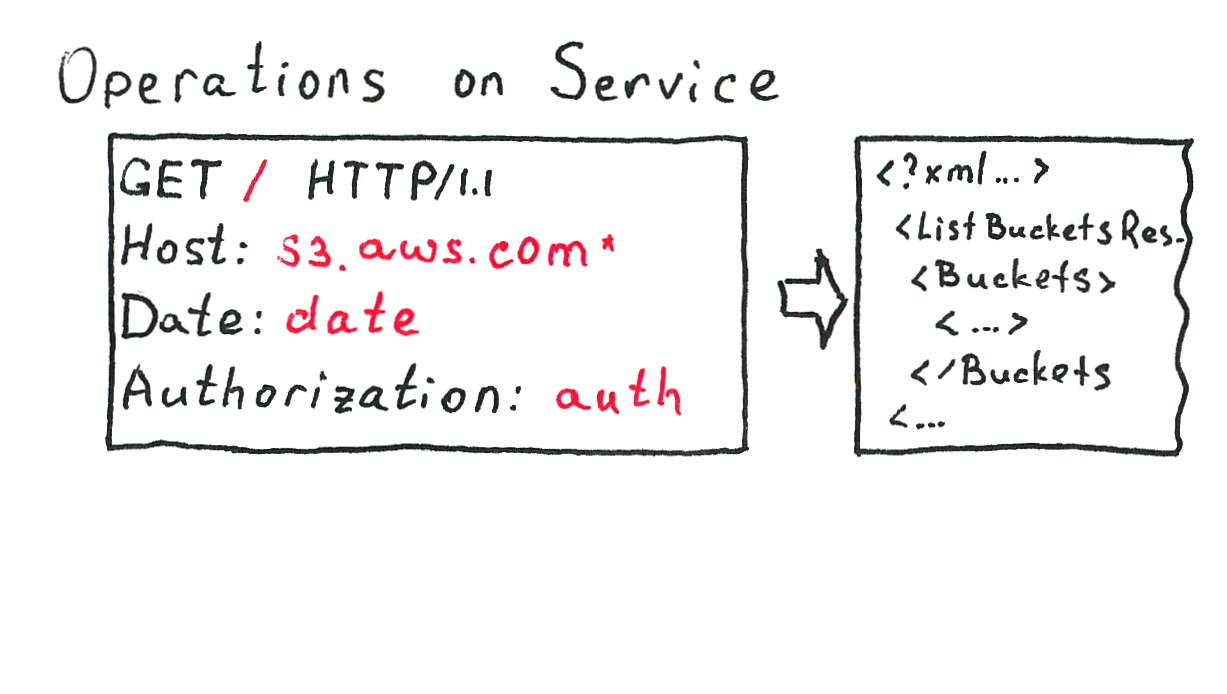 Operations on Service
GET / HTTP/1.1
Host: s3.aws.com*
Date: date
Authorization: auth
<?xml...>
<ListBucketsRes.
<Buckets>
<...>
</Buckets
<...